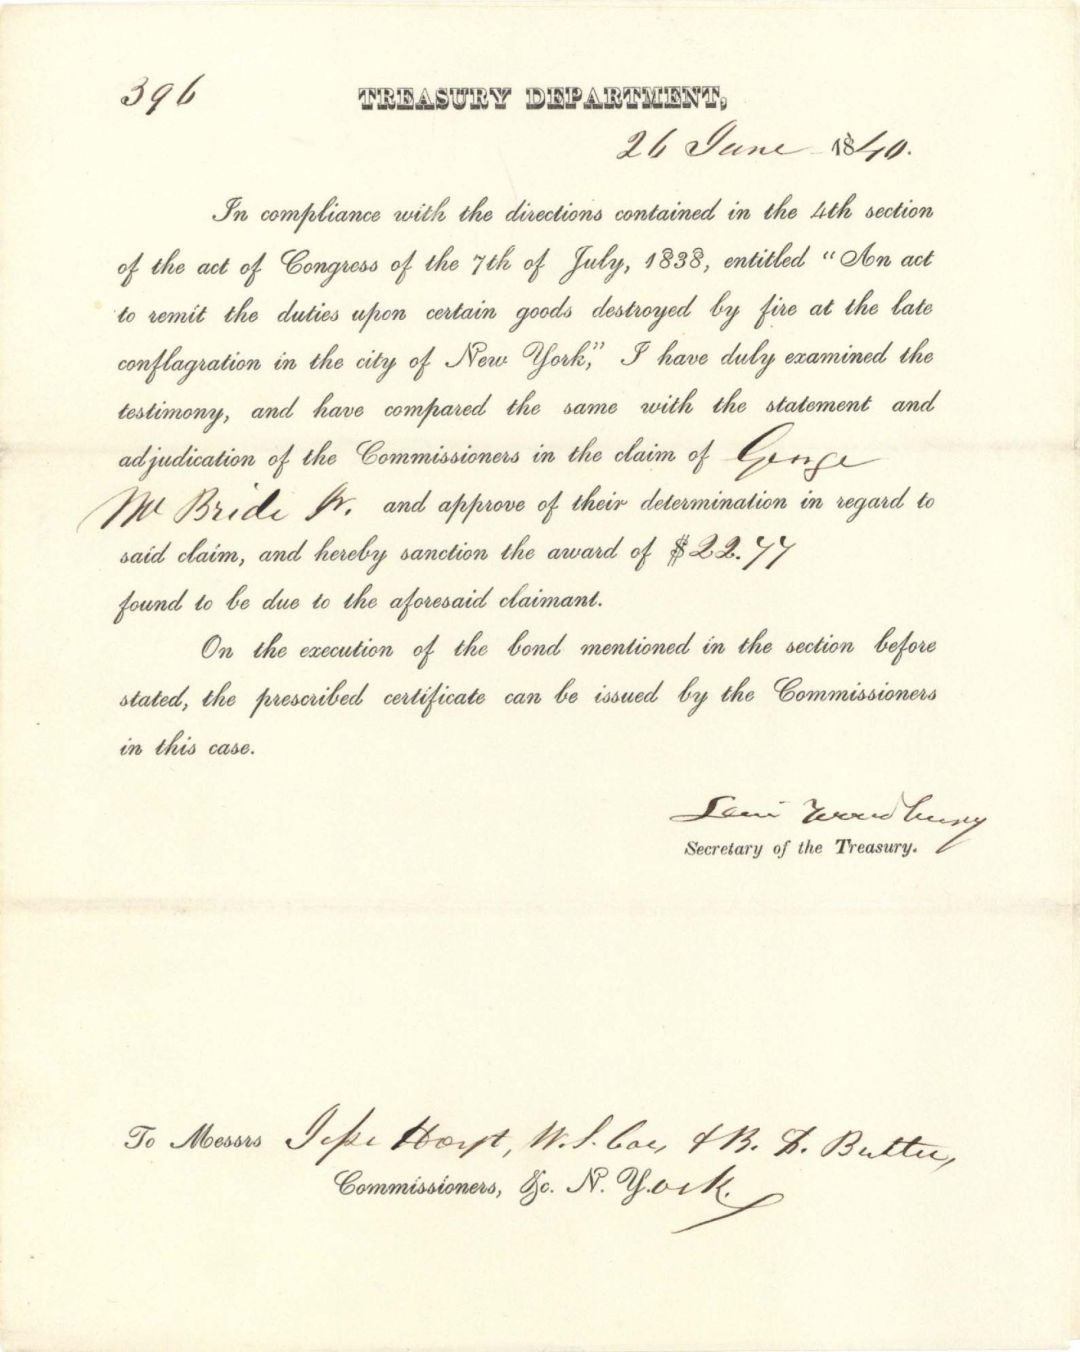 396
TREASURY DEPARTMENT,
26 June 1840.
In compliance with the directions contained in the 4th section
of the act of Congress of the 7th of July, 1838, entitled "An act
to remit the duties upon certain goods destroyed by fire at the late
conflagration in the city of New York," I have duly examined the
testimony, and have compared the same with the statement and
adjudication of the Commissioners in the claim of George
Mc Bride Jr. and approve of their determination in regard to
said claim, and hereby sanction the award of $22.77
found to be due to the aforesaid claimant.
On the execution of the bond mentioned in the section before
stated, the prescribed certificate can be issued by the Commissioners
in this case.
Levi Woodbury
Secretary of the Treasury.
To Messrs Jesse Hoyt, W. S. Coe, & B. F. Butler,
Commissioners, &c. N. York.